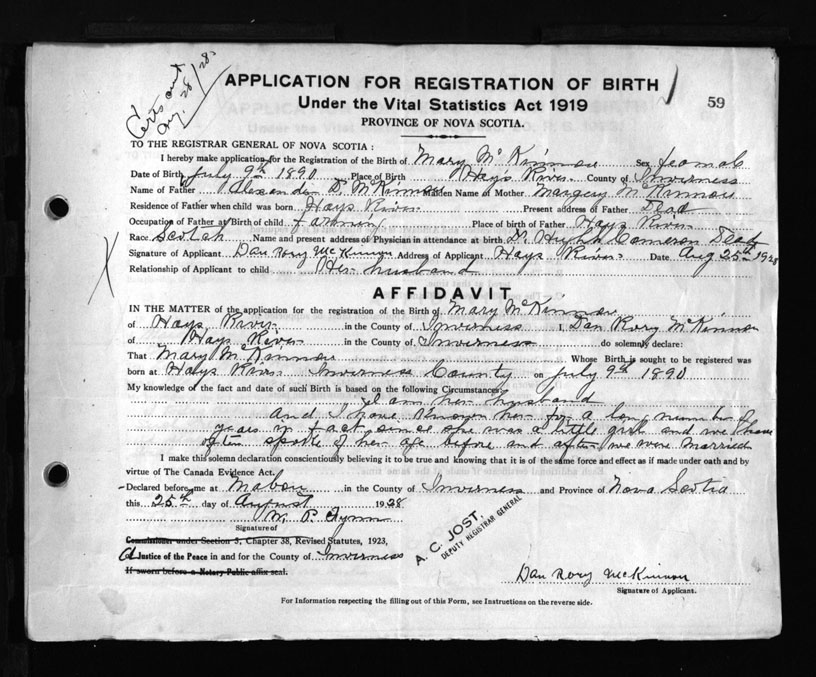 Certs out
Aug. 28/28
APPLICATION FOR REGISTRATION OF BIRTH
59
Under the Vital Statistics Act 1919
PROVINCE OF NOVA SCOTIA.
TO THE REGISTRAR GENERAL OF NOVA SCOTIA:
I hereby make application for the Registration of the Birth of Mary McKinnon Sex female
Date of Birth July 9th 1890 Place of Birth Hays River County of Inverness
Name of Father Alexander D. McKinnon Maiden Name of Mother Margery McKinnon
Residence of Father when child was born Hays River Present address of Father Dead
Occupation of Father at Birth of child farming Place of birth of Father Hays River
Race Scotch Name and present address of Physician in attendance at birth Dr Hugh Cameron Dead
Signature of Applicant Dan Rory McKinnon Address of Applicant Hays River Date Aug 25th 1928
Relationship of Applicant to child Her husband
AFFIDAVIT
IN THE MATTER of the application for the registration of the Birth of Mary McKinnon
of Hays River in the County of Inverness I, Dan Rory McKinnon
of Hays River in the County of Inverness do solemnly declare:
That Mary McKinnon Whose Birth is sought to be registered was
born at Hays River Inverness County on July 9th 1890
My knowledge of the fact and date of such Birth is based on the following Circumstances:
I am her husband
And I have known her for a long number of
years in fact since she was a little girl and we have
often spoke of her age before and after we were married
I make this solemn declaration conscientiously believing it to be true and knowing that it is of the same force and effect as if made under oath and by
virtue of The Canada Evidence Act.
Declared before me at Mabou in the County of Inverness and Province of Nova Scotia
this 25th day of August 1928
Signature of
Commissioner under Section 3, Chapter 38, Revised Statutes, 1923,
A Justice of the Peace in and for the County of Inverness
If sworn before a Notary Public affix seal.
A. C. JOST,
DEPUTY REGISTRAR GENERAL
Dan Rory McKinnon
Signature of Applicant.
For Information respecting the filling out of this Form, see Instructions on the reverse side.